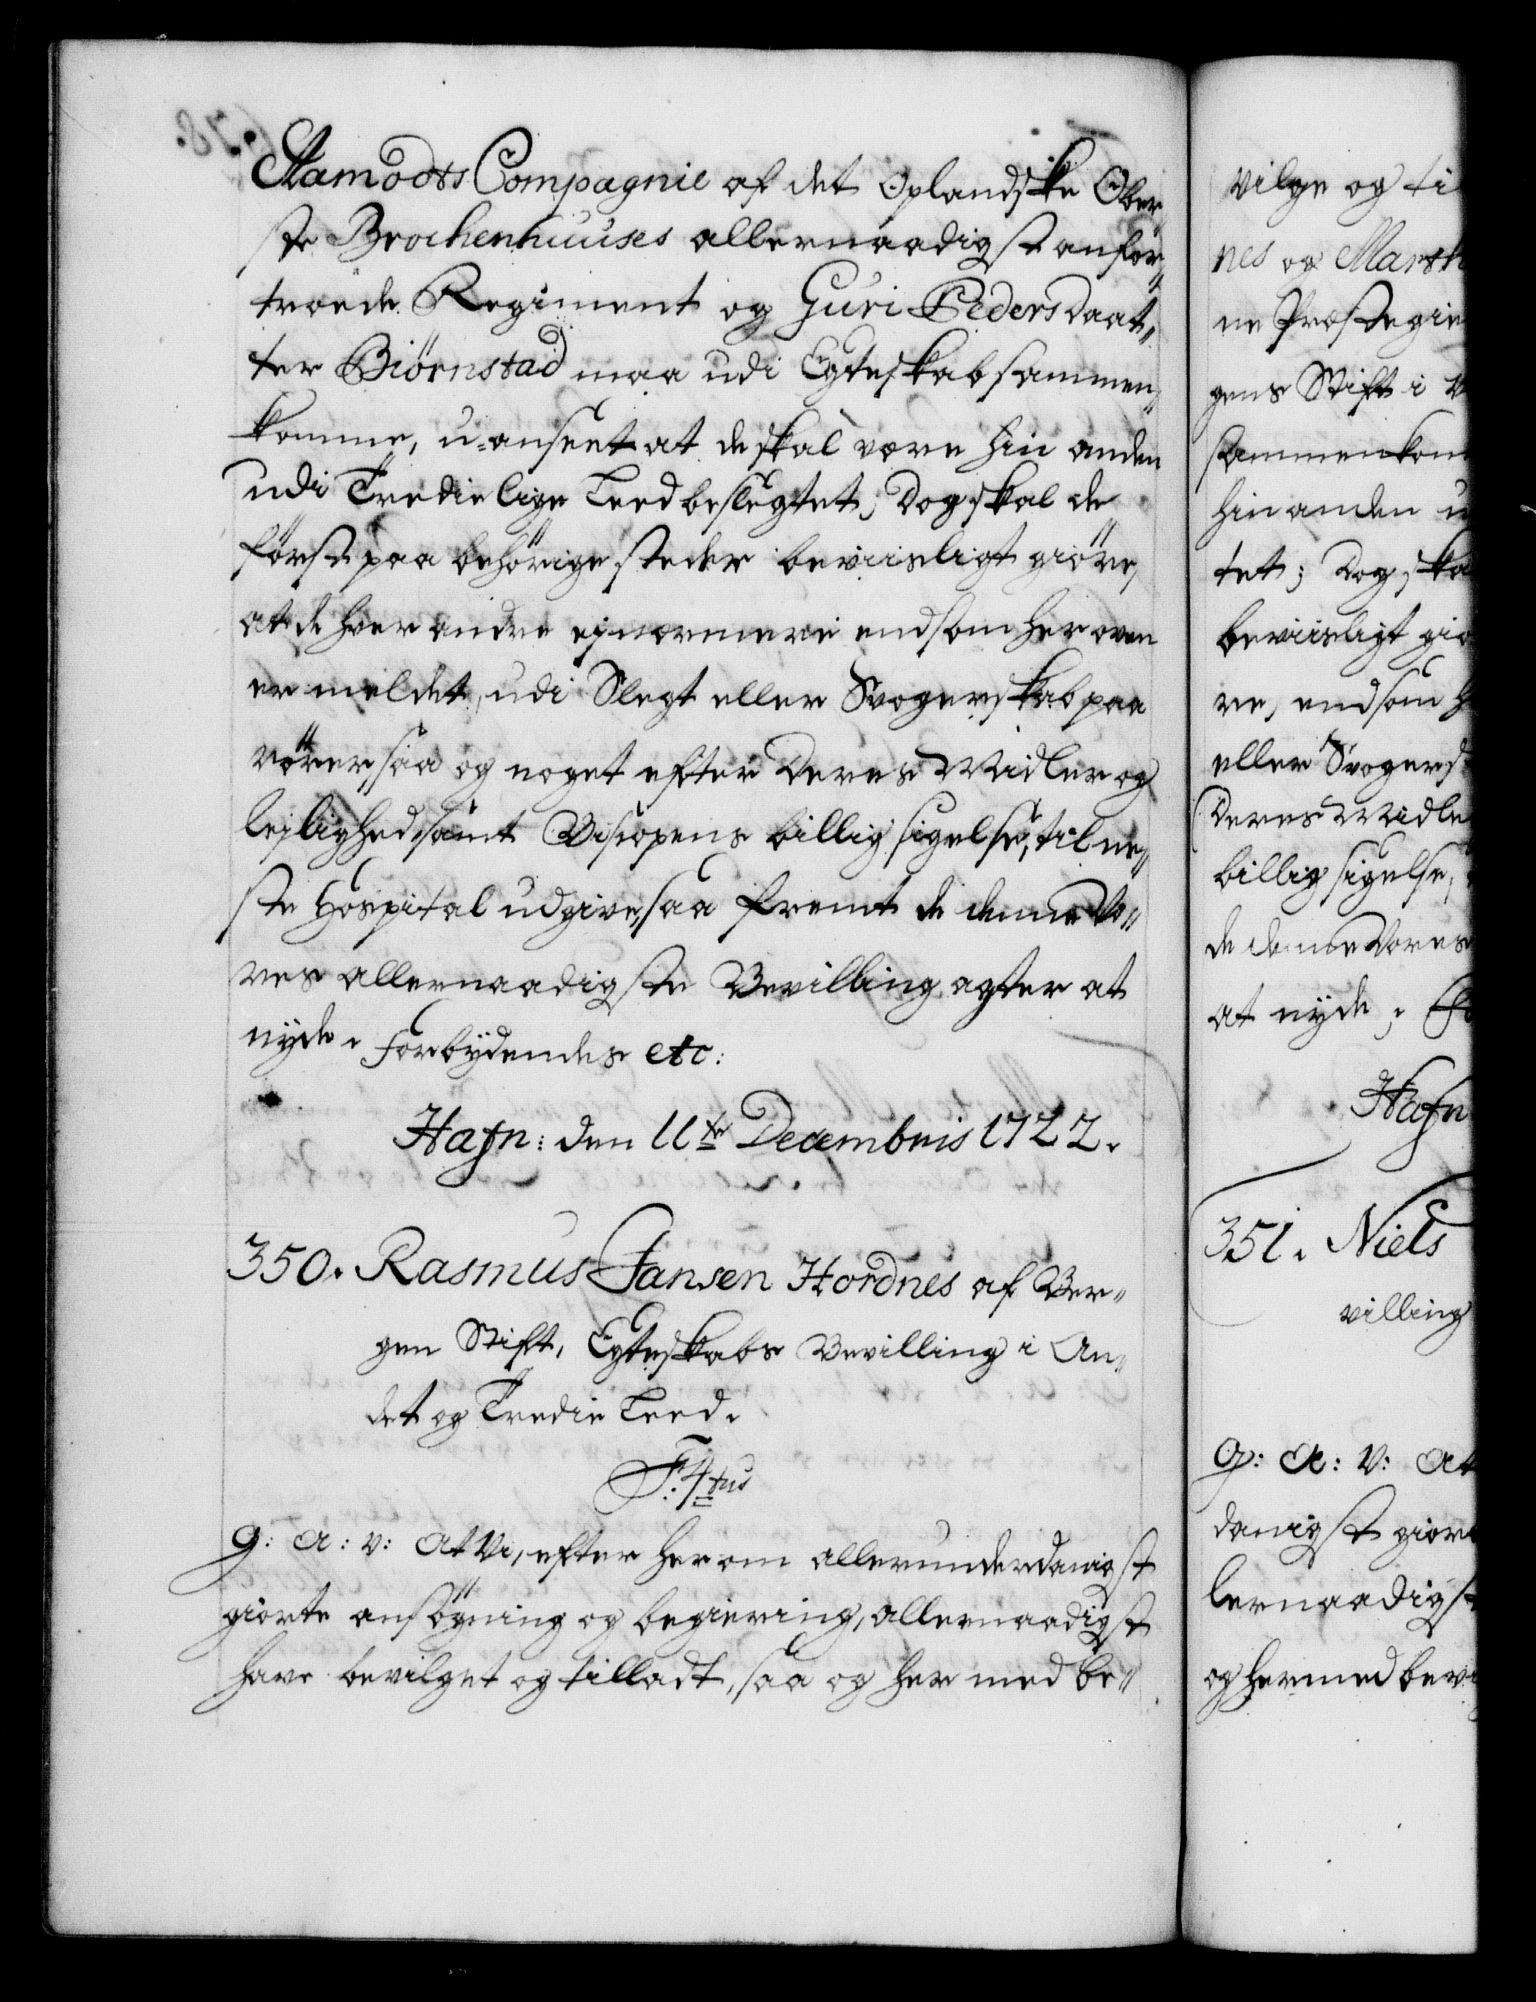 Stamodts Compagnie af det Oplandske Ober
ste Brochenhuuses allernaadigst anfor„
troede Regiment og Guri Pedersdaat„
ter Biørnstad maa udi Egteskab sammen„
komme, u-anseet at de skal være hin anden
udi Tredie lige Leed beslegtet; Dog skal de
først paa behørige steder beviisligt giøre,
at de hver andre ej nærmere end som her oven
er meldet, udi Slegt eller Svogerskab paa
rører, saa og noget efter Deres Midler og
lejlighed, samt Biscopens billig sigelse, til ne„
ste Hospital udgive, saa fremt de denne Vo„
res allernaadigste Bevilling agter at
nyde. Forbydendes etc:
Hafn: den 11te Decembris 1722.
350. Rasmus Jansen Hordnes af Ber„
gen Stift, Egteskabs Bevilling i An„
det og Tredie Leed.
F: 4tus
G: A: V: At Vi, efter herom allerunderdanigst
giorte ansøgning og begiering, allernaadigst
have bevilget og tilladt, saa og her med be„
vilge og til
nes og Marsh
ne Præstegie
gens Stift i
sammenkom
hinanden u
tet; Dog ska
beviisligt giø
re, end som h
eller Svogers
Deres Midle
billig sigelse,
de denne Vores
at nyde. Fo
Hafn
351. Niels
villing
G: A: V: At
danigst giort
lernaadigst
og hermed bevi